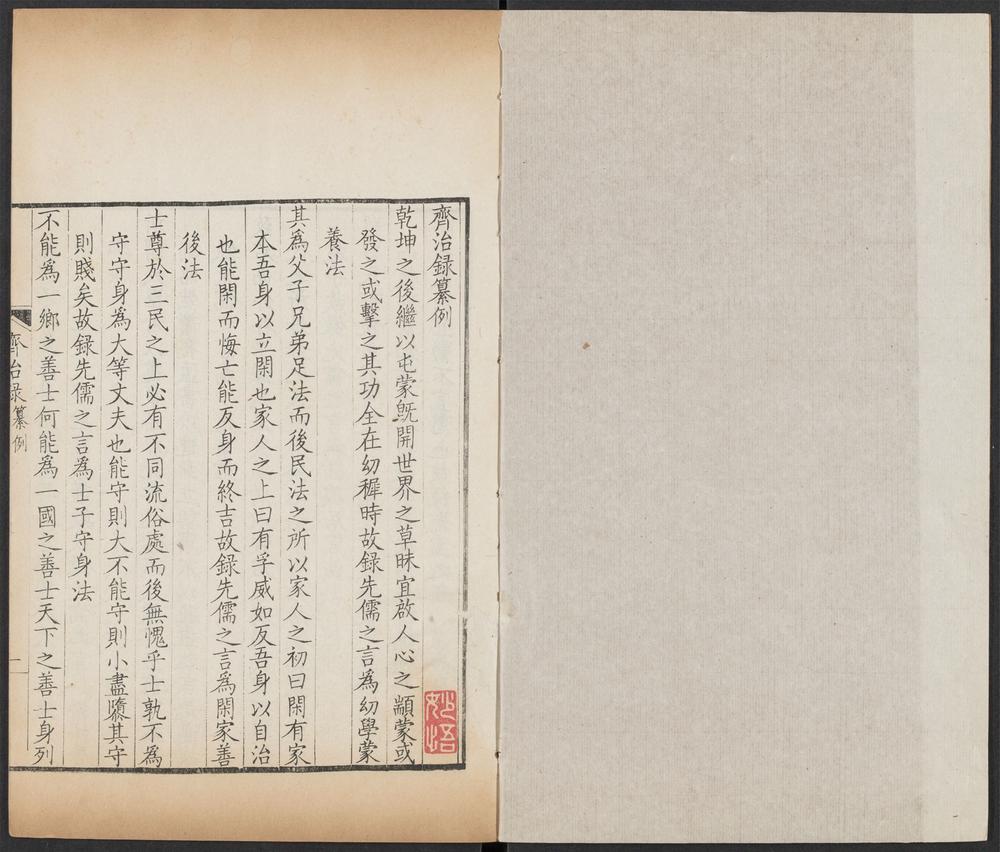 齊治録纂例
乾坤之後繼以屯蒙旣開世界之草昧宜啟人心之顓蒙或
發之或擊之其功全在幼穉時故録先儒之言為幼學蒙
養法
其為父子兄弟足法而後民法之所以家人之初曰閑有家
本吾身以立閑也家人之上曰有孚威如反吾身以自治
也能閑而悔亡能反身而終吉故録先儒之言為閑家善
後法
士尊於三民之上必有不同流俗處而後無愧乎士孰不為
守守身為大等丈夫也能守則大不能守則小盡隳其守
則賤矣故録先儒之言為士子守身法
不能為一鄉之善士何能為一國之善士天下之善士身列
齊治録纂例
一
妙悟